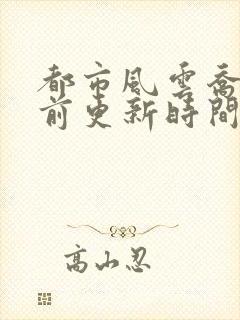 都市風雲喬
前更新時間
高山忍